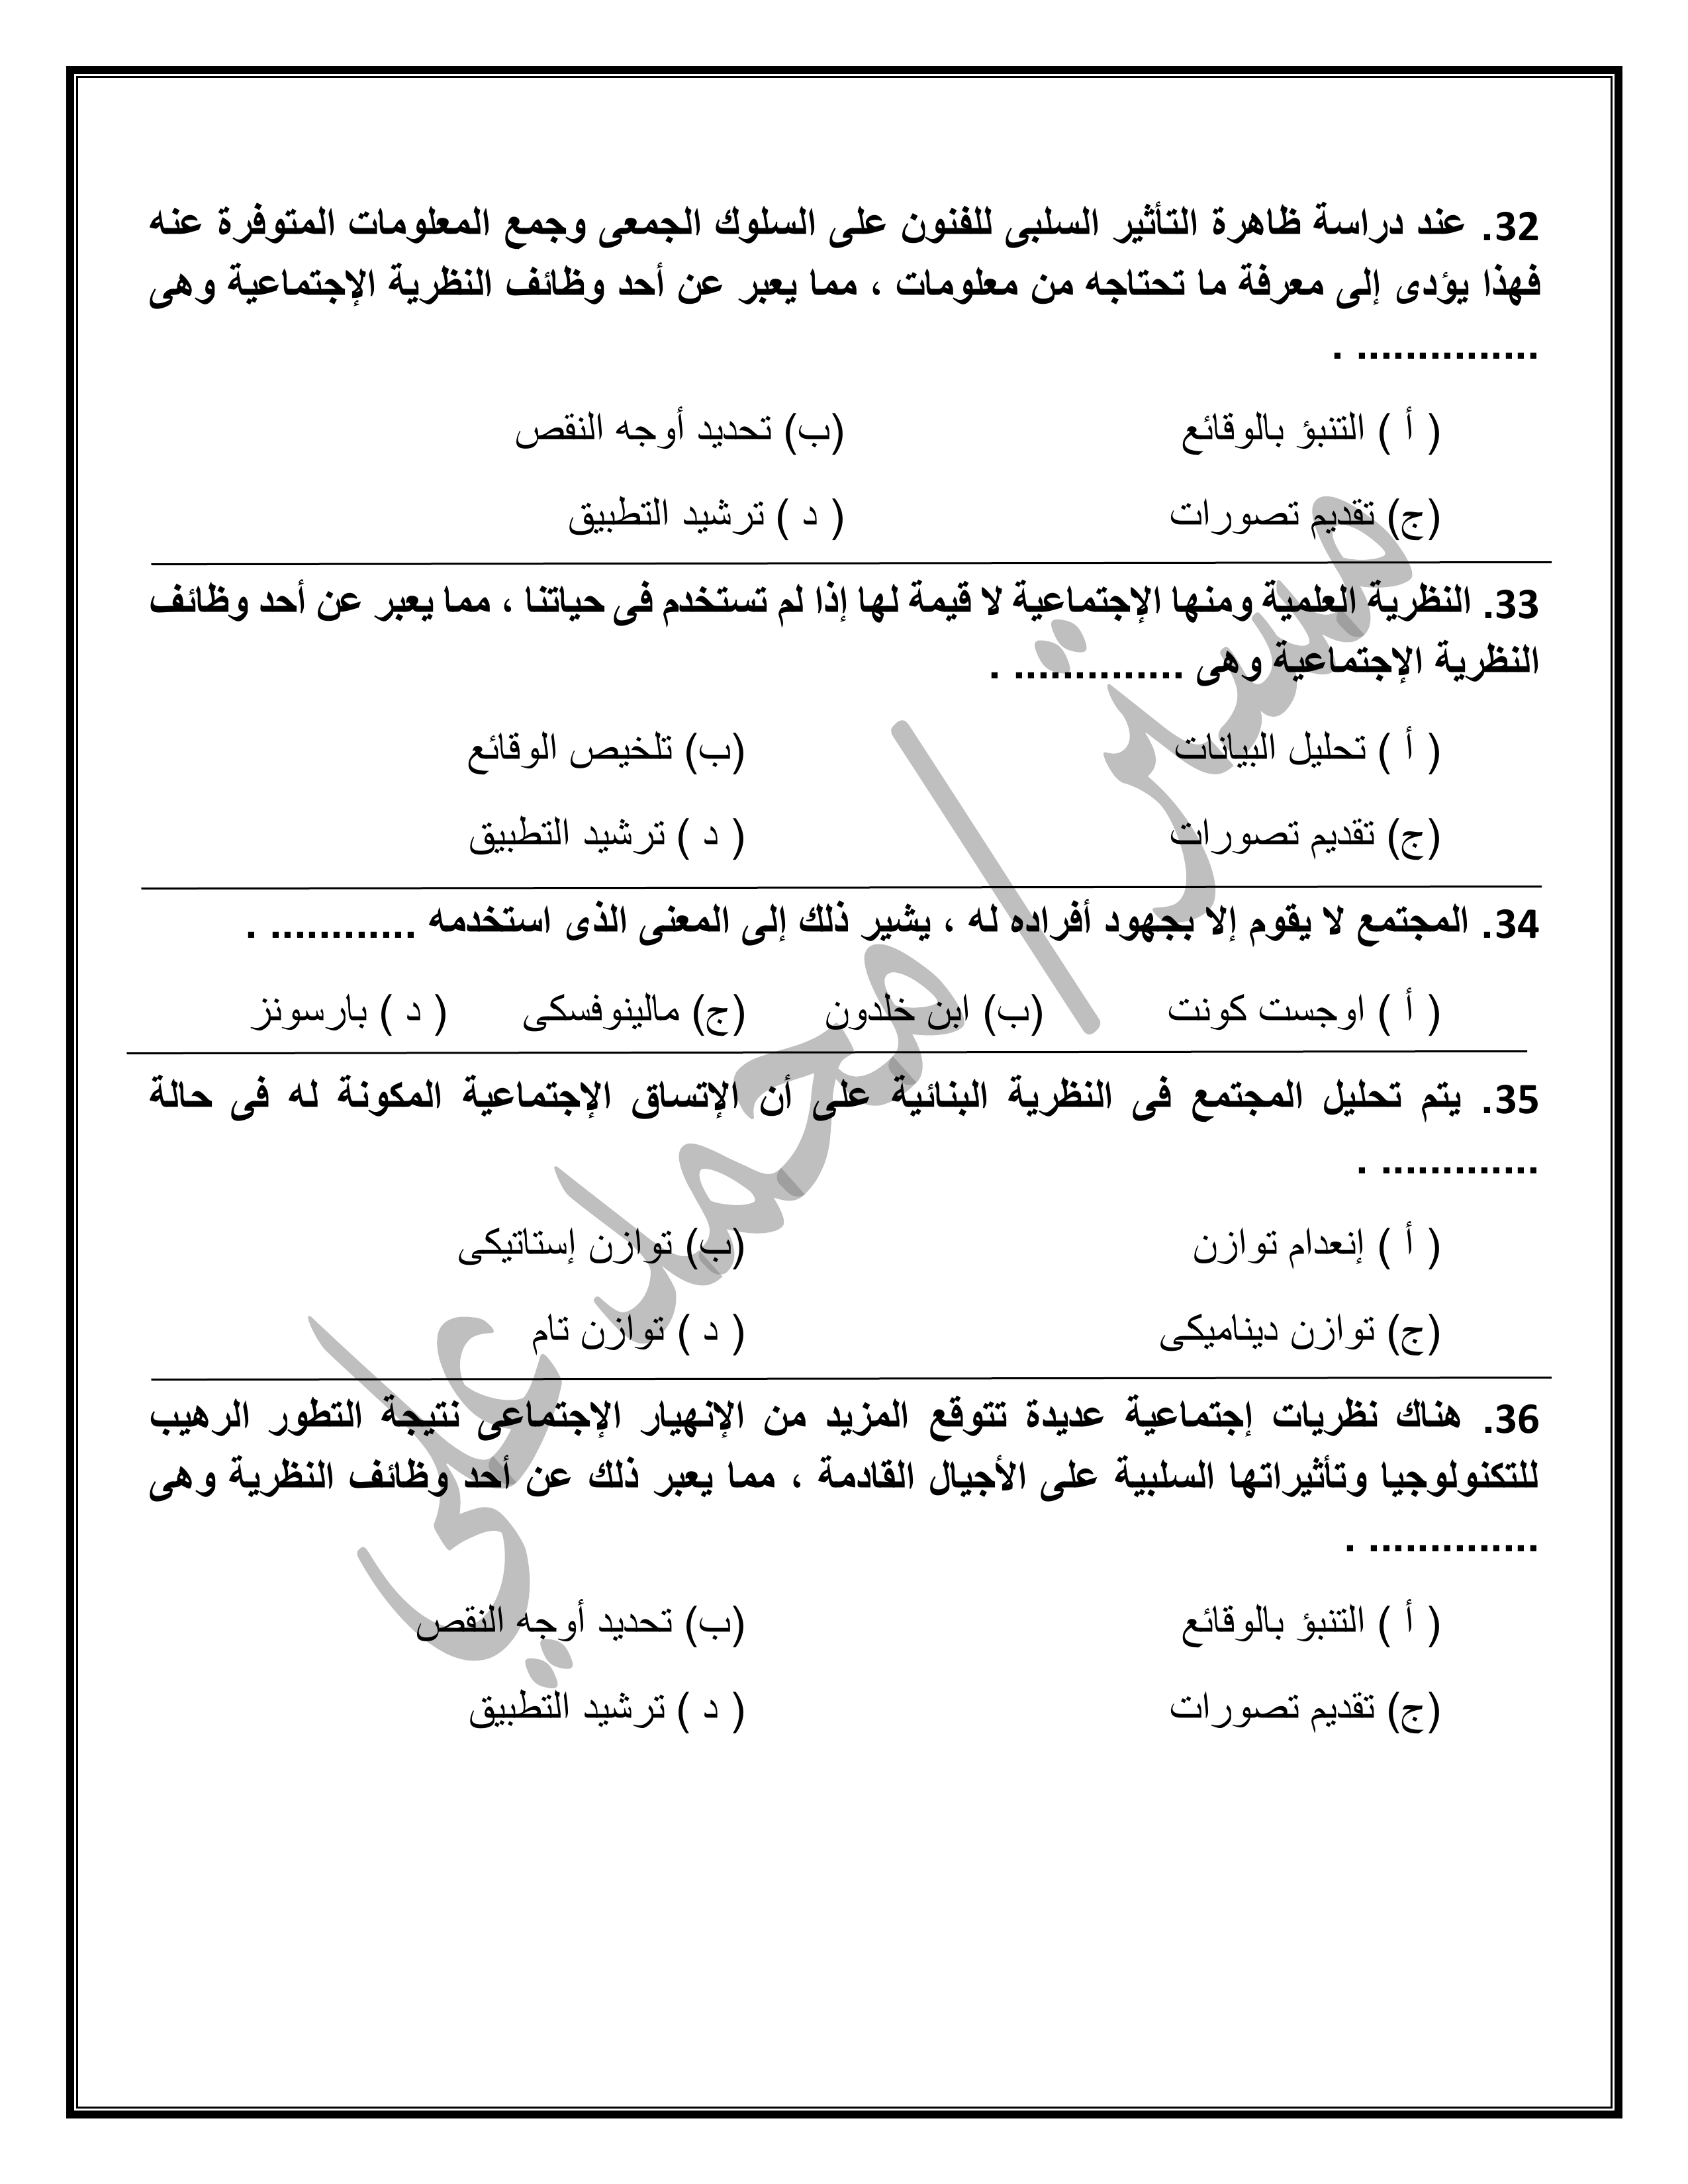 32. عند دراسة ظاهرة التأثير السلبى للفنون على السلوك الجمعى وجمع المعلومات المتوفرة عنه
فهذا يؤدى إلى معرفة ما تحتاجه من معلومات ، مما يعبر عن أحد وظائف النظرية الإجتماعية وهى
............... .
( أ ) التنبؤ بالوقائع (ب) تحديد أوجه النقص
(ج) تقديم تصورات ( د ) ترشيد التطبيق
33. النظرية العلمية ومنها الإجتماعية لا قيمة لها إذا لم تستخدم فى حياتنا ، مما يعبر عن أحد وظائف
النظرية الإجتماعية وهى .............. .
( أ ) تحليل البيانات (ب) تلخيص الوقائع
(ج) تقديم تصورات ( د ) ترشيد التطبيق
34. المجتمع لا يقوم إلا بجهود أفراده له ، يشير ذلك إلى المعنى الذى استخدمه ............ .
( أ ) اوجست كونت (ب) ابن خلدون (ج) مالينوفسكى ( د ) بارسونز
35. يتم تحليل المجتمع فى النظرية البنائية على أن الإتساق الإجتماعية المكونة له فى حالة
............. .
( أ ) إنعدام توازن (ب) توازن إستاتيكى
(ج) توازن ديناميكى ( د ) توازن تام
36. هناك نظريات إجتماعية عديدة تتوقع المزيد من الإنهيار الإجتماعى نتيجة التطور الرهيب
للتكنولوجيا وتأثيراتها السلبية على الأجيال القادمة ، مما يعبر ذلك عن أحد وظائف النظرية وهى
.............. .
( أ ) التنبؤ بالوقائع (ب) تحديد أوجه النقص
(ج) تقديم تصورات ( د ) ترشيد التطبيق
مستر/محمد علي